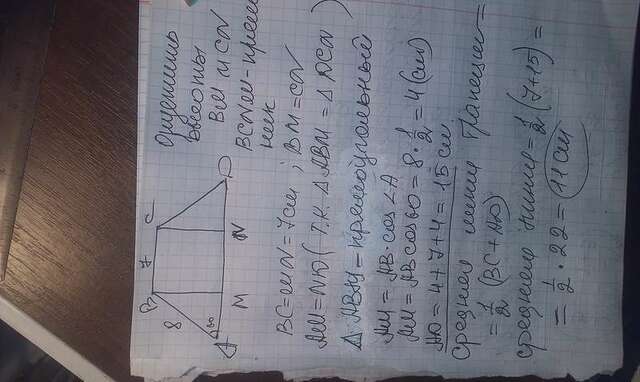 B 7 C
8
60
A M N D
Опустим
высоты
BM и CN
BCNM - прямо
ник
BC = MN = 7 см; BM = CN
AM = ND (т.к. Δ ABM = Δ DCN)
Δ ABM - прямоугольный
AM = AB · cos ∠A
AM = AB cos 60 = 8 · 1/2 = 4 (см)
AD = 4 + 7 + 4 = 15 см
средняя линия трапеции =
= 1/2 (BC + AD)
средняя линия = 1/2 (7 + 15) =
= 1/2 · 22 = 11 см